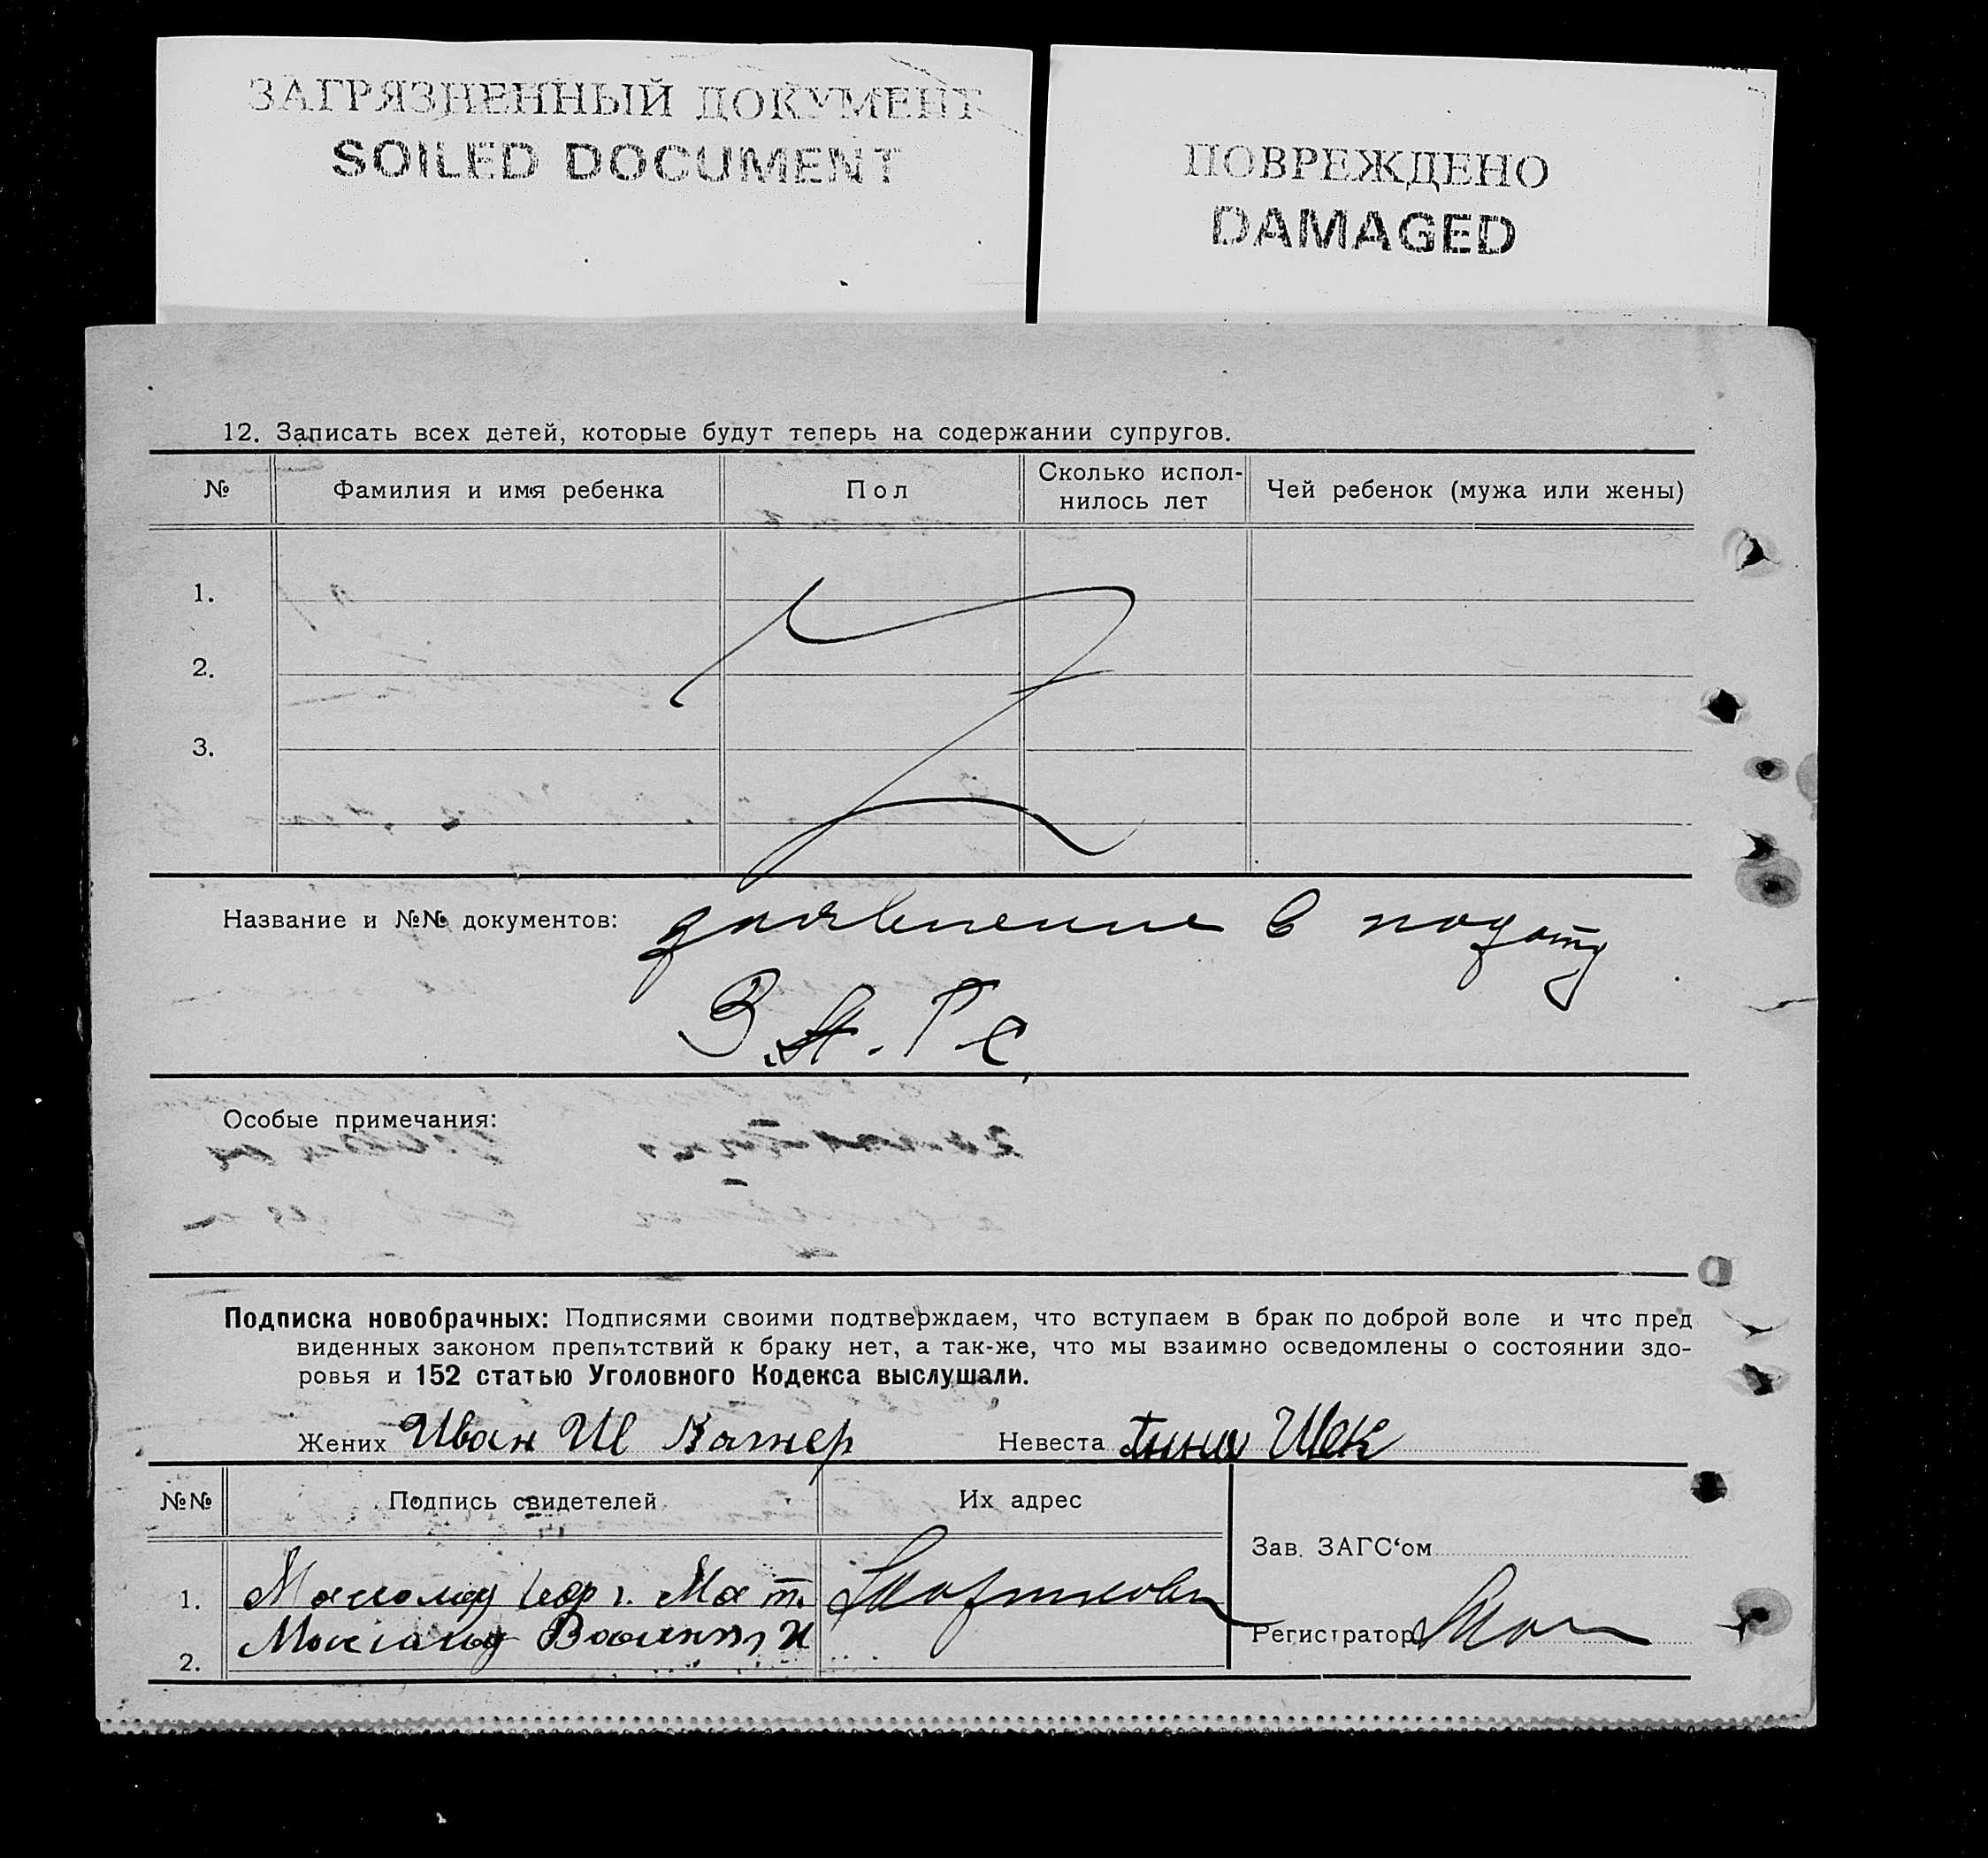 ЗАГРЯЗНЕННЫЙ ДОКУМЕНТ
SOILED DOCUMENT
ПОВРЕЖДЕНО
DAMAGED
12. Записать всех детей, которые будут теперь на содержании супругов.
№ Фамилия и имя ребенка Пол Сколько испол-нилось лет Чей ребенок (мужа или жены)
1.
2.
3.
Название и №№ документов: заявление в
З.А.Гс.
Особые примечания:
Подписка новобрачных: Подписями своими подтверждаем, что вступаем в брак по доброй воле и что пред
виденных законом препятствий к браку нет, а так-же, что мы взаимно осведомлены о состоянии здо-
ровья и 152 статью Уголовного Кодекса выслушали.
Жених Иван Ш Вагнер Невеста Анна Шек
№№ Подпись свидетелей Их адрес
Зав. ЗАГС'ом
1.
Регистратор
2.